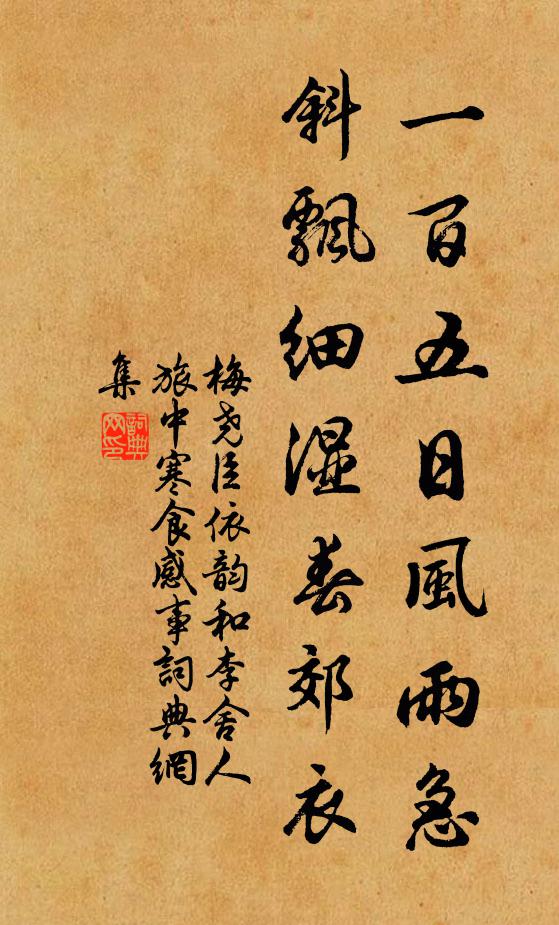 一百五日風雨急
斜飄細濕春郊衣
梅堯臣依韵和李舍人
旅中寒食感事詞典網
集
詞典
网印